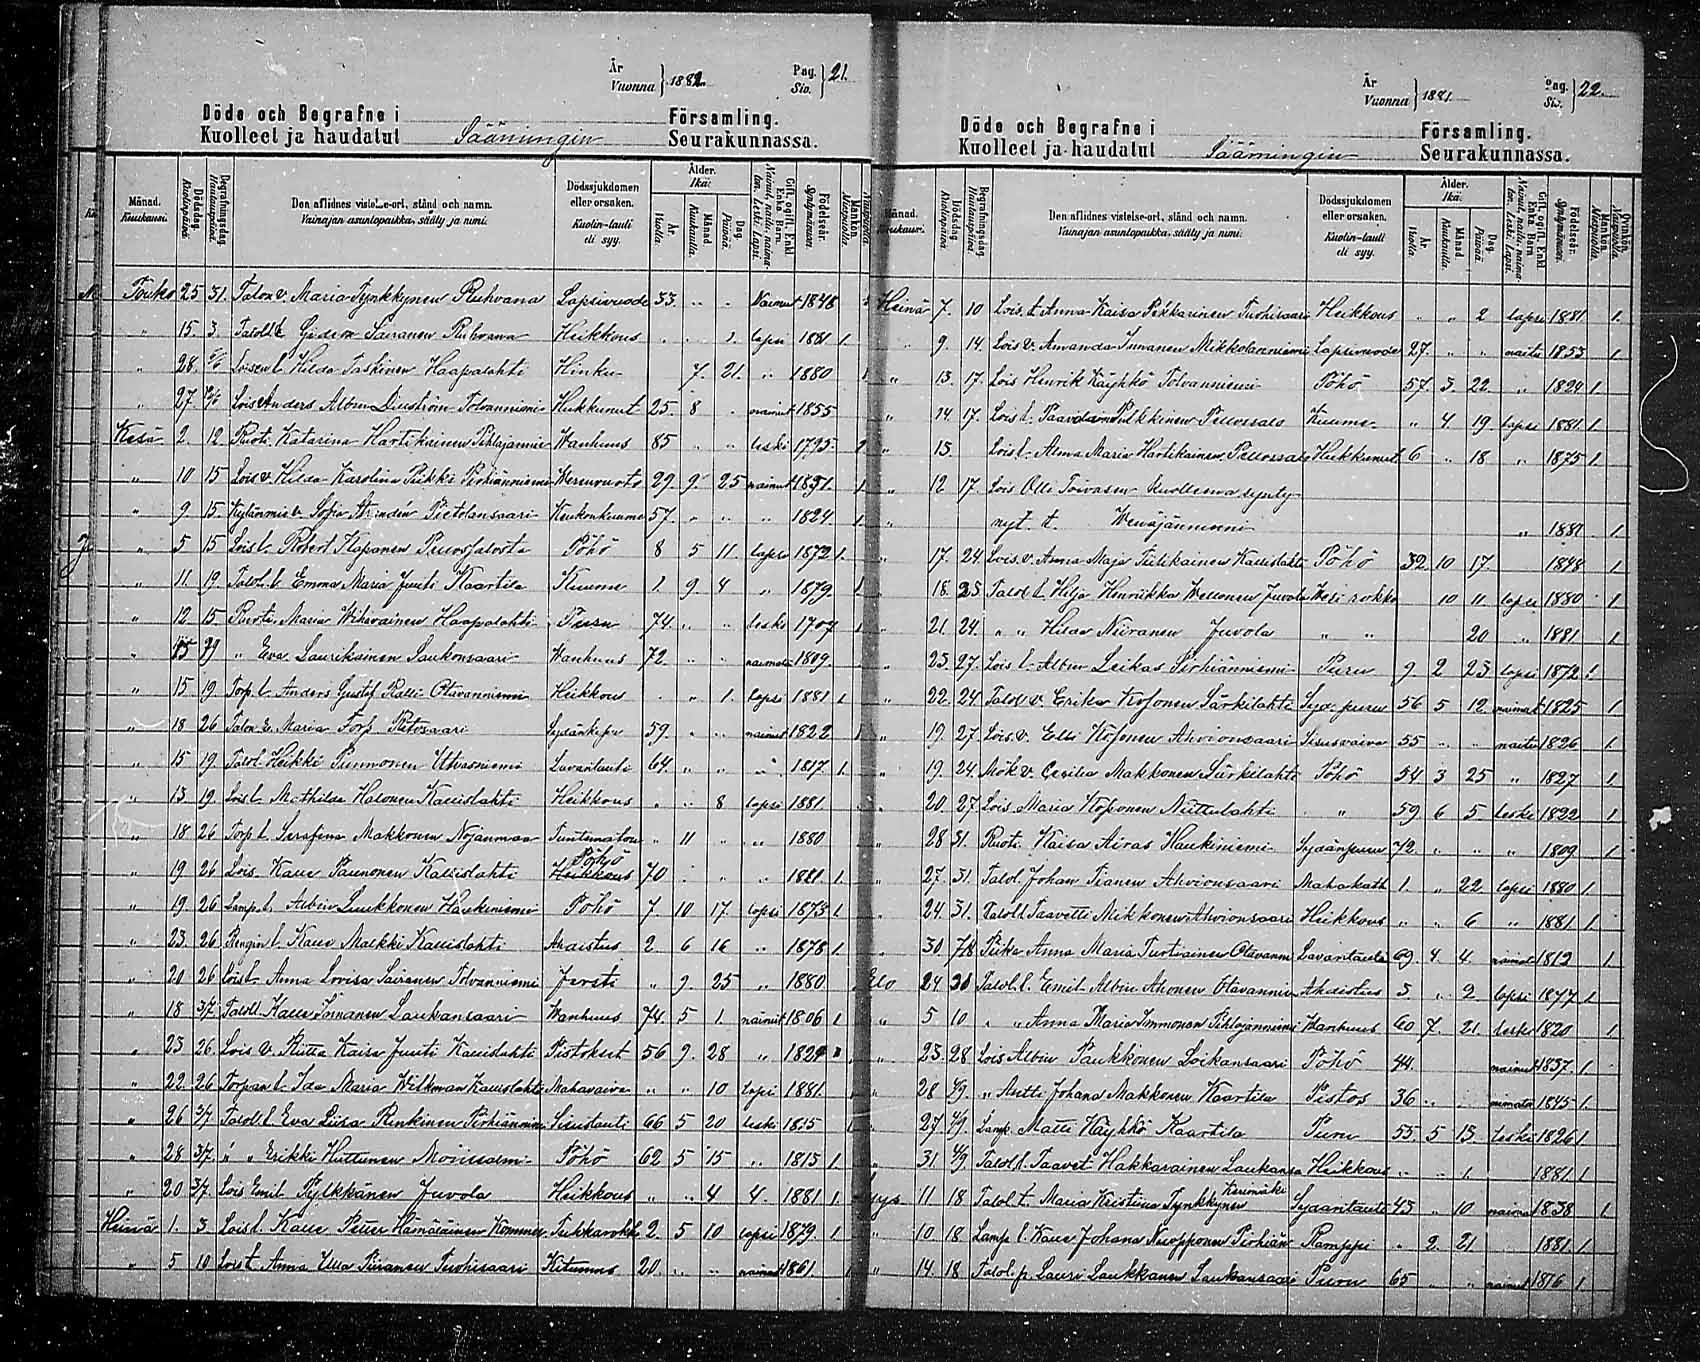 År
Vuonna } 1882. Pag. Siv. } 21.
Döde och Begrafne i Församling.
Kuolleet ja haudatut Sääningin Seurakunnassa.
Månad. Kuukausi. Dödsdag. Kuolinpäivä. Begrafningsdag. Hautauspäivä. Den aflidnes vistelse-ort, stånd och namn. Vainajan asuntopaikka, sääty ja nimi. Dödssjukdomen eller orsaken. Kuolin-tauti eli syy. Ålder. Ikä: År Vuotta. Månad Kuukautta. Dag. Päivää. Gift, ogift, Enkl. Enka Barn Födelseår. Syntymävuosi. Mankön. Miespuolta.
Touko 25 31. Talon v. Maria Tynkkynen Ruhvana Lapsivuode 33. " " Nainut 1848
" 15. 3. Talol. t. Gideon Sairanen Ruhvana Heikkous " " 1. lapsi 1881 1.
" 28. 6/6 Loisen t. Hilda Taskinen Haapalahti Hinku 7. 21. " 1880
" 27. Lois Anders Albin Tolvanniemi Heikkunut 25. 8 " nainut 1855
Kesä 2. 12 Ruoti Katarina Hartikainen Pihlajannie Wanhuus 85 " " leski 1795.
" 10 15 Lois v. Hilda Karolina Piikki Pirhiänniemi Werenvuoto 29. 9. 25 nainut 1851. 1.
" 9. 15. Kylänmie v. Sofia Pietolansaari Keuhkonkuume 57. " " " 1824. 1.
" 5 15 Lois t. Robert Kaponen Pöhö 8 5 11. lapsi 1872 1.
" 11. 19. Talol. t. Emma Maria Juuti Kaartila Kuume 1. 9 4 " 1879
" 12 15 Ruoti Maria Wihavainen Haapalahti Puru 74. " " leski 1707
" 15 29 " Eva Laurikainen Laukonsaari Wanhuus 72 " " 1809.
" 15 19. Torp. t. Anders Gustaf Ralli Otavanniemi Heikkous " " 1. lapsi 1881 1
" 18 26 Talon e. Maria Torp Ritosaari 59. " " nainut 1822
" 15 19 Talol. Heikki Punnonen Utvasniemi Lavantauti 64. " " " 1817 1.
" 13. 19. Lois t. Mathilda Halonen Kallislahti Heikkous " " 8 lapsi 1881.
" 18 26 Torp. t. Serafina Makkonen Nojanmaa Tuntematon " 11 " " 1880
" 19 26 Lois Kalle Paunonen Kallislahti Pöhö Heikkous 70 " " " 1881 1.
" 19. 26 Lamp. t. Albin Luukkonen Haukiniemi Pöhö 7 10 17. lapsi 1873 1.
" 23. 26 Rengin t. Kalle Malkki Kallislahti Ahdistus 2. 6 16 " 1878 1.
" 20 26 Lois t. Anna Lovisa Sairanen Tolvanniemi 9. 25 " 1880
" 18 3/7 Talol. Kalle Immanen Laukansaari Wanhuus 74. 5 1. nainut 1806 1
" 23 26. Lois v. Riitta Kaisa Juuti Kallislahti Pistokset 56 9. 28 "
" 22. 26 Torpan t. Ida Maria Wilkman Kallislahti Mahavaiva " " 10 lapsi 1881.
" 26 3/7 Talol. l. Eva Liisa Renkinen Pirhiänniemi Sisustauti 66 5 20 leski 1815
" 28 3/7. " " Erikki Huttunen Moinsalmi Pöhö 62 5 15 " 1815 1.
" 20 3/7 Lois Emil Pylkkänen Juvola Heikkous " " 4 4. 1881 1.
Heinä 1. 3 Lois t. Kalle Petter Hämäläinen Kommer 2. 5 10 lapsi 1879. 1
" 5 10 Lois t. Anna Ulla Piiranen Tuohisaari Kitumus 20. " " nainut 1861.
År
Vuonna } 1881. Pag. Siv. } 22.
Döde och Begrafne i Församling.
Kuolleet ja haudatut Säämingin Seurakunnassa.
Månad. Kuukausi. Dödsdag. Kuolinpäivä. Begrafningsdag. Hautauspäivä. Den aflidnes vistelse-ort, stånd och namn. Vainajan asuntopaikka, sääty ja nimi. Dödssjukdomen eller orsaken. Kuolin-tauti eli syy. Ålder. Ikä: År Vuotta. Månad Kuukautta. Dag. Päivää. Gift, ogift, Enkl. Enka Barn Födelseår. Syntymävuosi. Mankön. Miespuolta. Qvinkön. Naispuolta.
Heinä 7. 10 Lois. t. Anna Kaisa Pekkarinen Tuohisaari Heikkous " " 2 lapsi 1881 1.
" 9. 14. Lois v. Amanda Immanen Mikkolanniemi Lapsivuode 27. " " naitu 1853 1
" 13. 17. Lois Henrik Käyhkö Tolvanniemi Pöhö 57. 3. 22. " 1824 1.
" 14. 17. Lois t. Pellossalo Kuume " 4 19. lapsi 1881 1.
" 15. Lois t. Alma Maria Hartikainen Pellossalo Heikkunut 6 " 18 " 1875 1.
" 12 17. Lois Olli Toivasen kuollenna synty-
" nyt. t. " 1881. 1
" 17. 24. Lois. v. Anna Maja Tiilikainen Kallislahti Pöhö 32. 10 17. 1848 1
" 18. 25 Talol. t. Hilja Henriikka Wellonen Juvola Wesirokko 10 11 lapsi 1880 1
" 21. 24. " " Hilda Niiranen Juvola " " 20 " 1881 1
" 23. 27. Lois t. Albin Leikas Pirhiänniemi Puru 9. 2 23 lapsi 1872 1.
" 22. 24 Talol. v. Erika Kosonen Särkilahti Syd. puru 56 5 12. nainut 1825 1
" 19. 27. Lois. v. Elli Kosonen Ahvionsaari Sisusvaiva 55 " " naitu 1826 1.
" 19. 24. Mök v. Cecilia Makkonen Särkilahti Pöhö 54 3 25 " 1827 1.
" 20. 27. Lois Maria Koponen Niittulahti " 59. 6 5 leski 1822 1
" 28 31. Ruoti Kaisa Airas Haukiniemi Sydänpuru 72. " " " 1809. 1
" 27. 31. Talol. Johan Tianen Ahvionsaari Mahakath 1. " 22 lapsi 1880 1
" 24. 31. Talol. t. Taavetti Mikkonen Ahvionsaari Heikkous " " 6 " 1881 1
" 30. 7/8 Piika Anna Maria Turtiainen Otavanni Lavantauti 69. 4 4. 1812 1.
Elo 24 30 Talol. t. Emil Albin Ahonen Otavannie Ahdistus 3 " 2 lapsi 1877 1.
" 5 10 " " Anna Maria Immonen Pihlajanniemi Wanhuus 60 7. 21. leski 1820 1.
" 23. 28 Lois Albin Paukkonen Loikansaari Pöhö 44. nainut 1837. 1.
" 28 4/9. " Antti Johana Makkonen Kaartila Pistos 36 " " 1845 1.
" 27. 4/9. Lamp. Matti Käyhkö Kaartila Puru 55. 5 13. leski 1826 1
" 31 4/9 Talol. t. Taavet Hakkarainen Laukansa Heikkous " " 1. 1881 1
Syys 11 18 Talol. t. Maria Kristiina Tynkkynen Kerimäki Sydäntauti 43 " 10 1838 1.
" 10 18 Lamp. t. Kalle Johana Nuopponen Pirhiän Ramppi " 2. 21. 1881. 1
" 14. 18 Talol. p. Lauri Laukkanen Laukansaari Puru 65 " " nainut 1816 1.